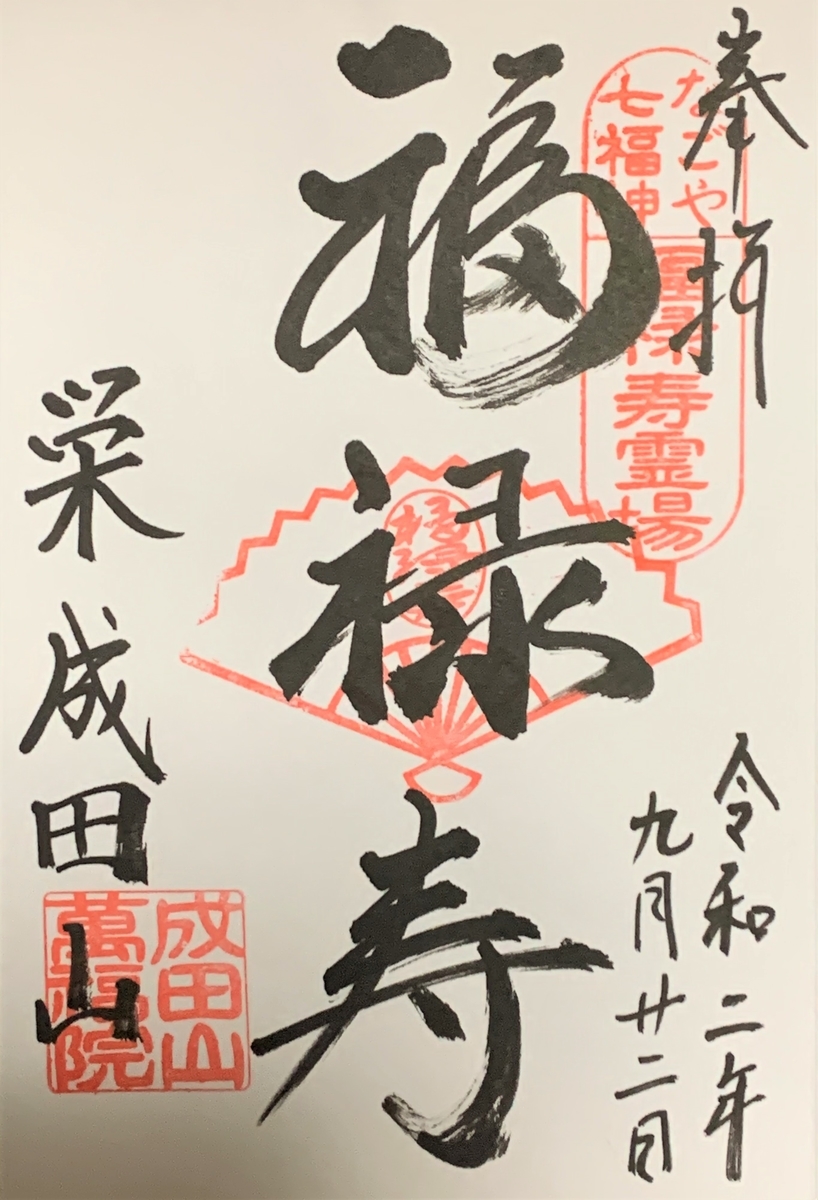 奉拝
なごや
七福神
福禄寿霊場
福禄寿
令和二年
九月廿二日
栄成田山
成田山
萬福院